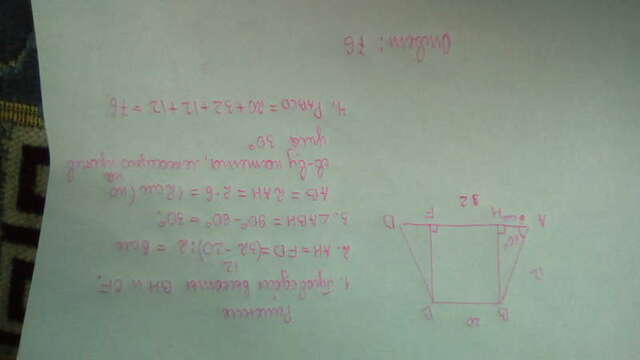 20
B B
12
60°
A 6 см H F D
32
Решение
1. Проведём высоты BH и CF.
12
2. AH = FD = (32 - 20) : 2 = 6 см
3. ∠ABH = 90° - 60° = 30°.
AB = 2AH = 2 · 6 = 12 см (по
св-ву катета, лежащего на против
угла 30°
4. PABCD = 20 + 32 + 12 + 12 = 76
Ответ: 76